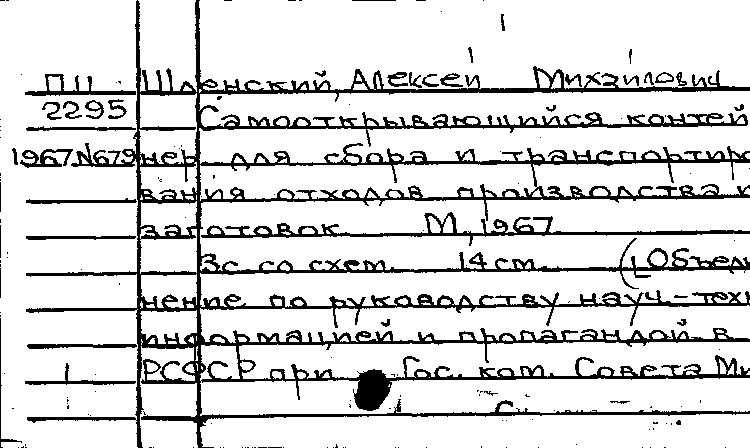 П11 Шленский, Алексей Михайлович
2295 Самооткрывающийся контей
1967.N679 нер для сбора и транспортиро
вания отходов производства и
заготовок М, 1967
3с. со схем. 14 см. (Объеди
нение по руководству науч.-техн
информацией и пропагандой в
РСФСР при Гос. ком. Совета Ми